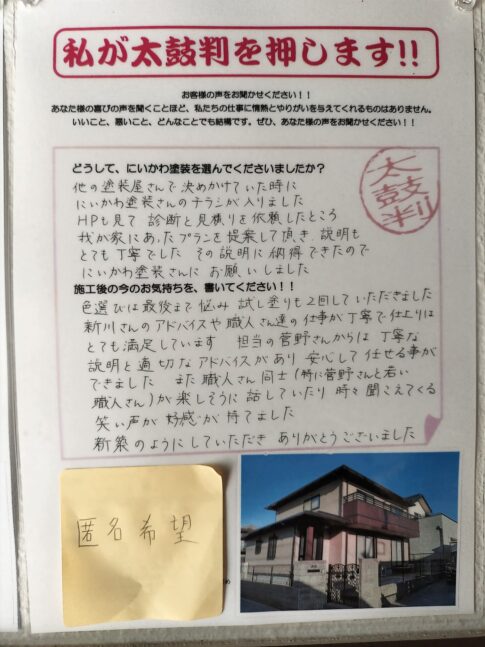 私が太鼓判を押します!!
お客様の声をお聞かせください！！
あなた様の喜びの声を聞くことほど、私たちの仕事に情熱とやりがいを与えてくれるものはありません。
いいこと、悪いこと、どんなことでも結構です。ぜひ、あなた様の声をお聞かせください！！
どうして、にいかわ塗装を選んでくださいましたか？
太鼓判
他の塗装屋さんで決めかけていた時に
にいかわ塗装さんのチラシが入りました
HPも見て 診断と見積りを依頼したところ
我が家にあったプランを提案して頂き 説明も
とても丁寧でした その説明に納得できたので
にいかわ塗装さんに お願いしました
施工後の今のお気持ちを、書いてください！！
色選びは最後まで悩み 試し塗りも2回していただきました
新川さんのアドバイスや職人さん達の仕事が丁寧で仕上りは
とても満足しています 担当の菅野さんからは丁寧な
説明と適切なアドバイスがあり 安心して任せる事が
できました また職人さん同士(特に菅野さんと若い
職人さん)が楽しそうに話していたり 時々聞こえてくる
笑い声が 好感が持てました
新築のようにしていただき ありがとうございました
匿名希望